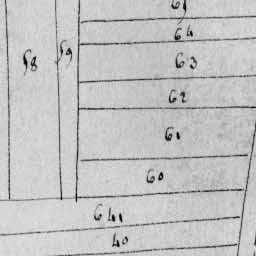 64
63
58
59
62
61
60
641
40